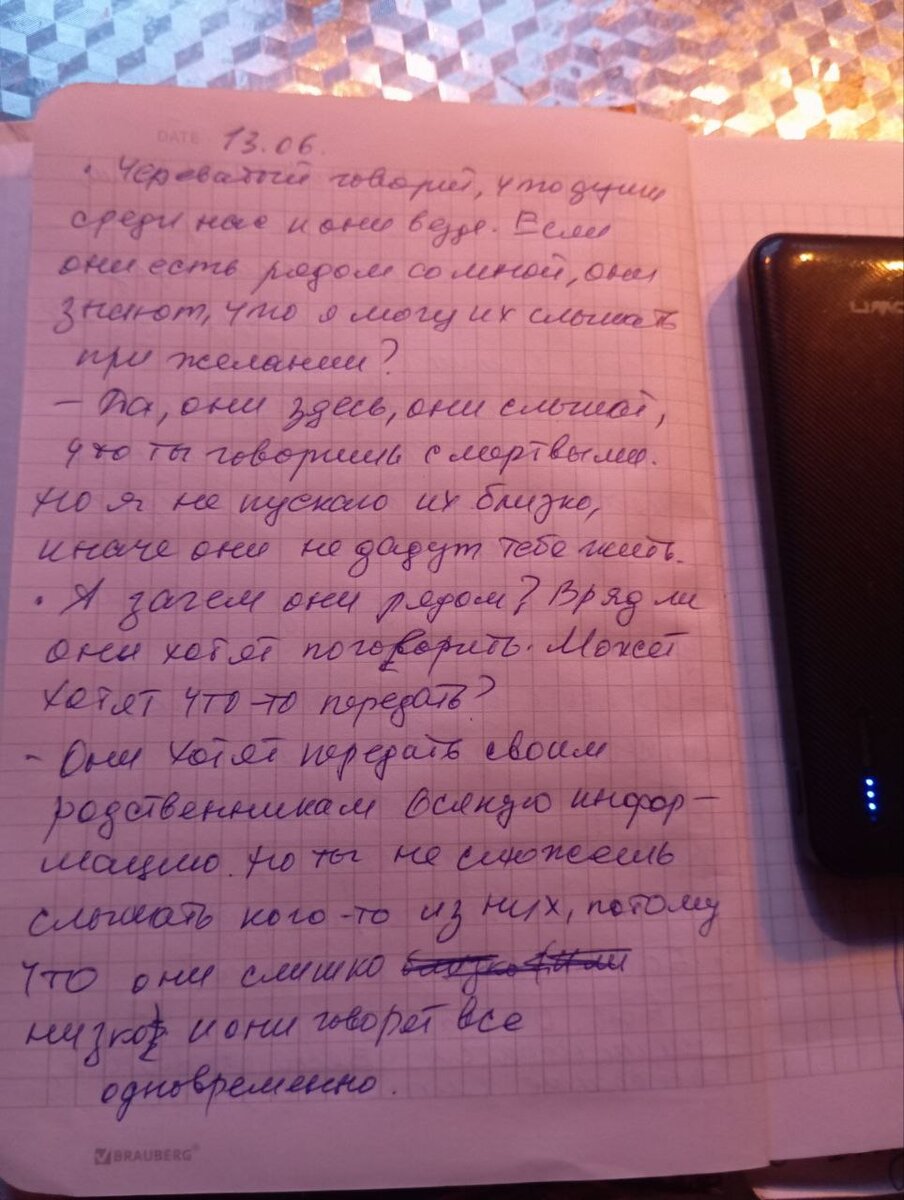 DATE 13.06.
· Череватый говорит, что души
среди нас и они везде. Если
они есть рядом со мной, они
знают, что я могу их слышать
при желании?
– Да, они здесь, они слышат,
что ты говоришь с мёртвыми.
Но я не пускаю их близко,
иначе они не дадут тебе жить.
· А зачем они рядом? Вряд ли
они хотят поговорить. Может
хотят что-то передать?
- Они хотят передать своим
родственникам всякую инфор-
мацию. Но ты не сможешь
слышать кого-то из них, потому
что они слишко
низко и они говорет все
одновременно.
BRAUBERG®